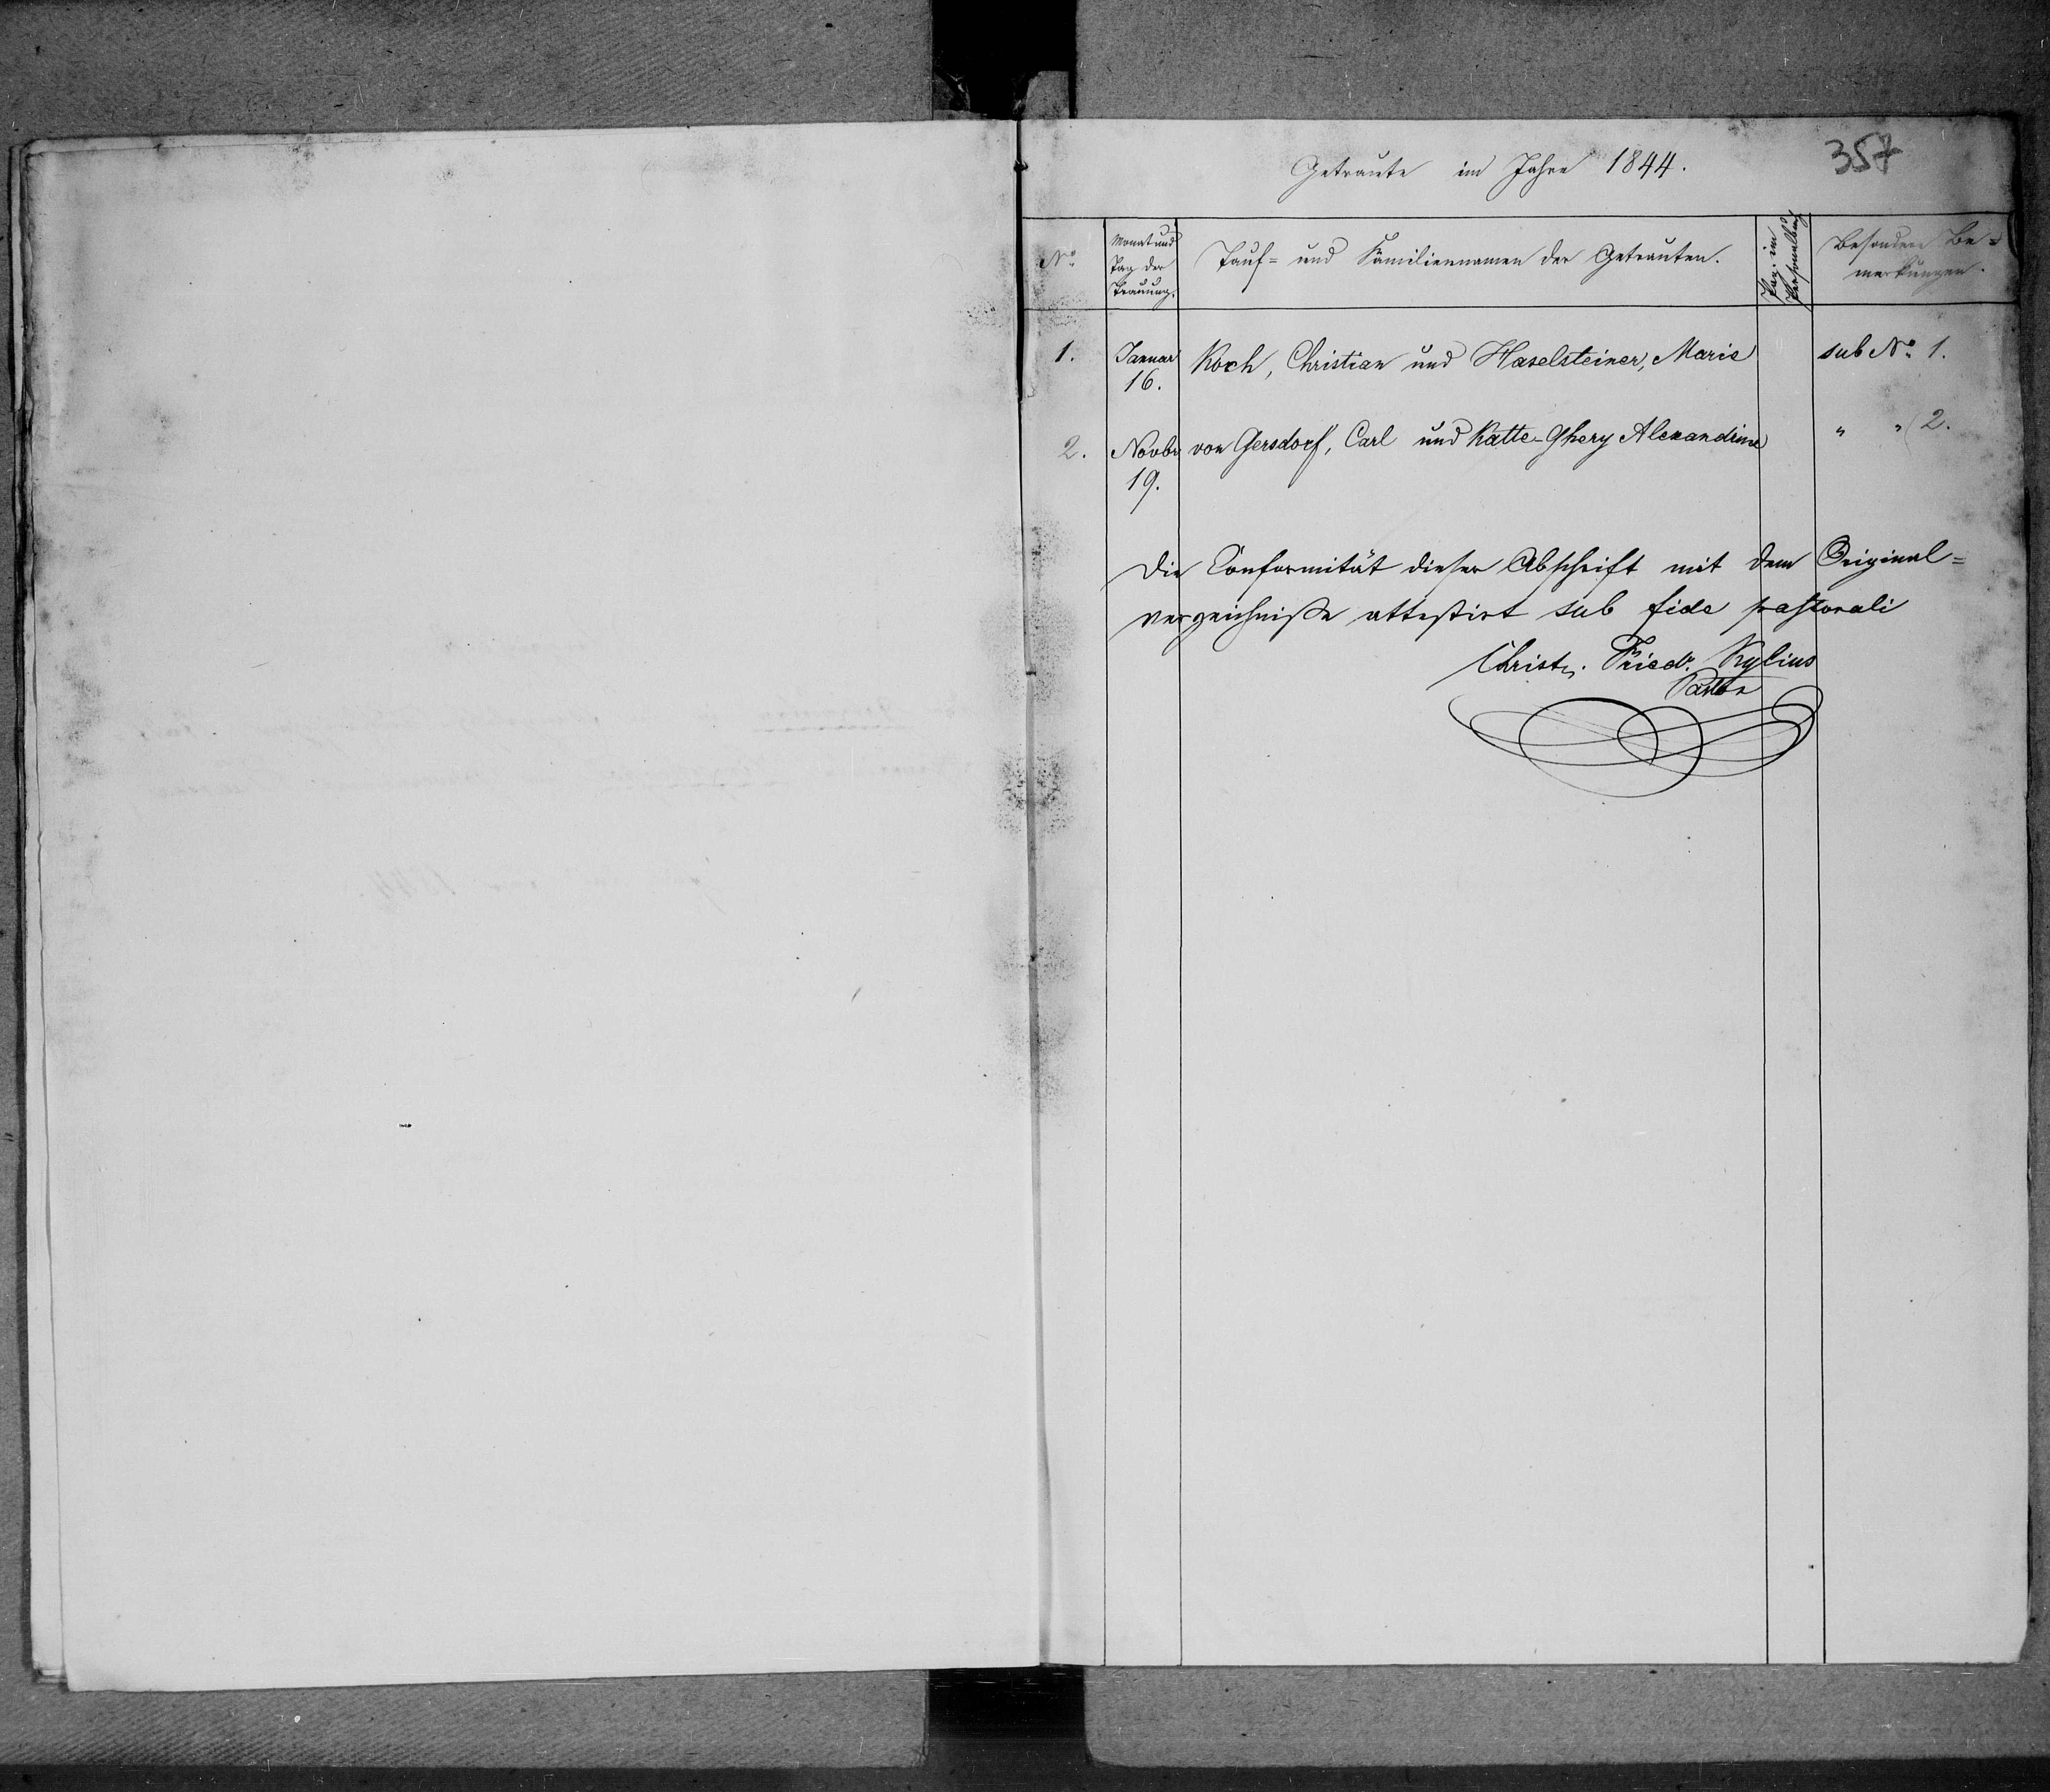 357
Getraute im Jahre 1844.
No.
Monat und
Tag der
Trauung.
Tauf- und Familiennamen der Getrauten.
Pag. im
Personalbuch
Besondere Be=
merkungen.
1. Januar 16. Koch, Christian und Haselsteiner, Marie sub No. 1.
2. Novbr 19. von Gersdorf, Carl und Katte-Ghery Alexandrine " " 2.
Die Conformität dieser Abschrift mit dem Original=
verzeichniße attestirt sub fide pastorali
Christ. Friedr. Kylius
Pastor
1844.